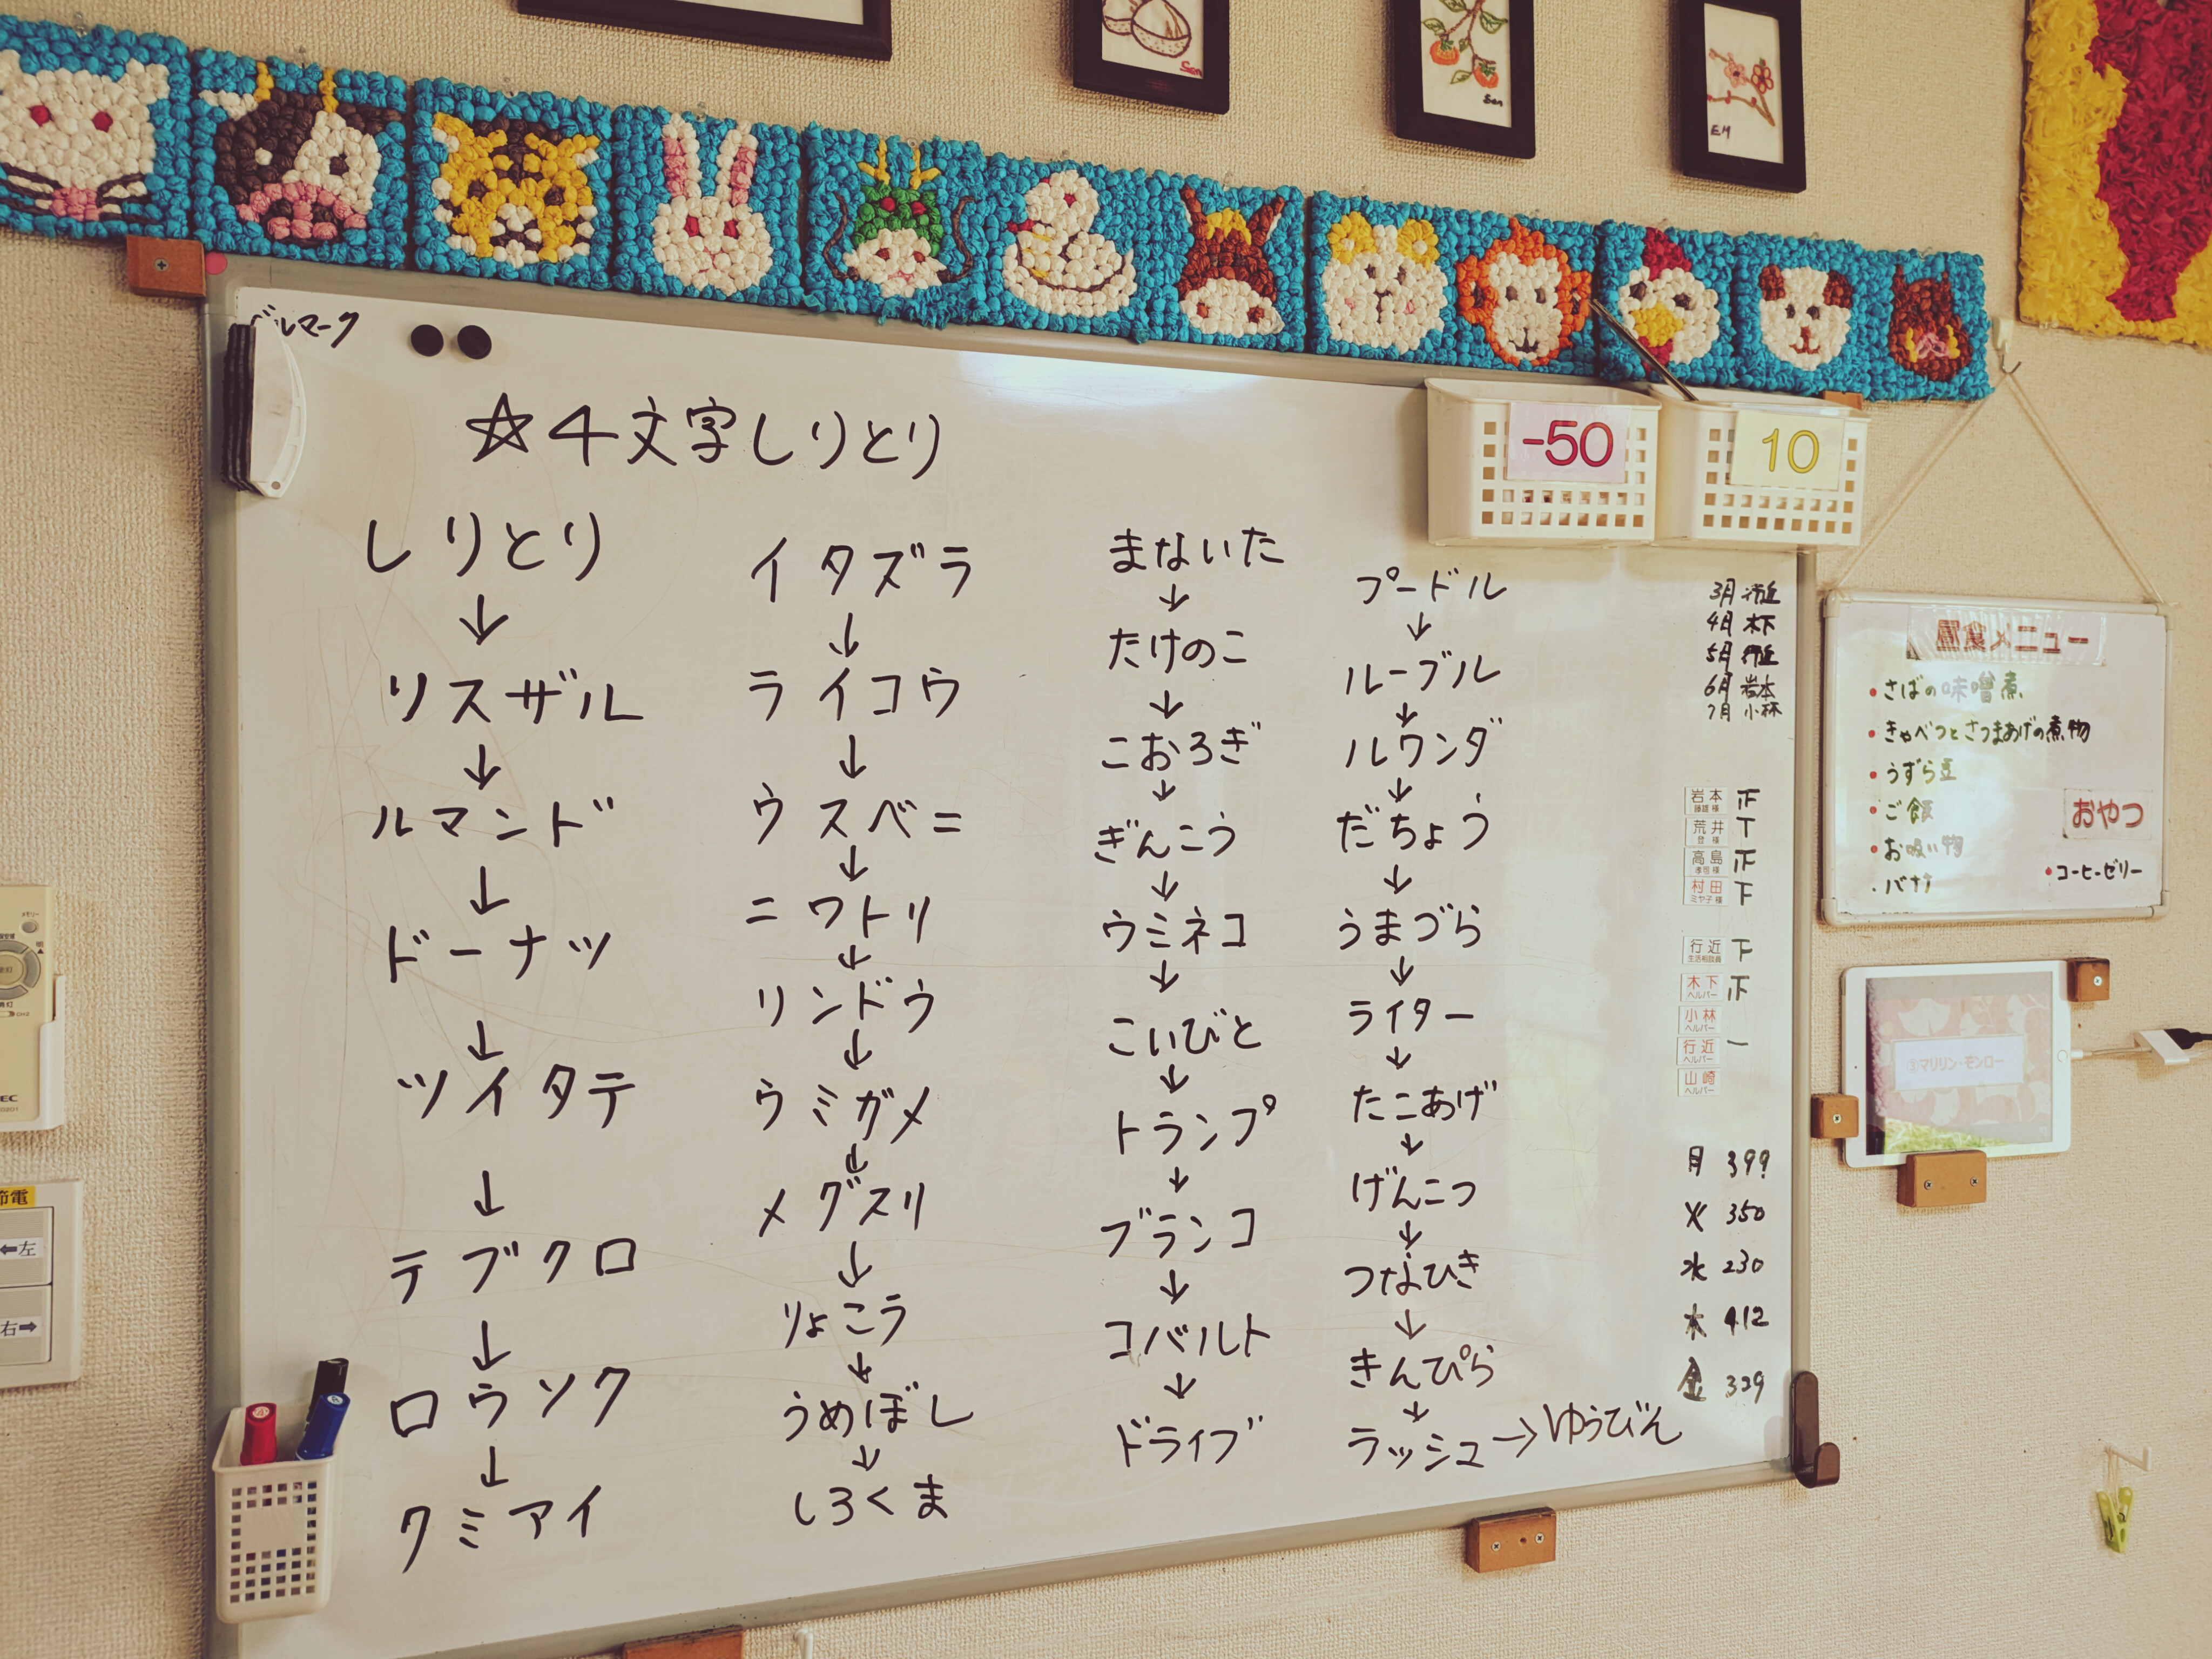 ベルマーク
☆4文字しりとり
しりとり
↓
リスザル
↓
ルマンド
↓
ドーナツ
↓
ツイタテ
↓
テブクロ
↓
ロウソク
↓
クミアイ
イタズラ
↓
ライコウ
↓
ウスベニ
↓
ニワトリ
↓
リンドウ
↓
ウミガメ
↓
メグスリ
↓
りょこう
↓
うめぼし
↓
しろくま
まないた
↓
たけのこ
↓
こおろぎ
↓
ぎんこう
↓
ウミネコ
↓
こいびと
↓
トランプ
↓
ブランコ
↓
コバルト
↓
ドライブ
プードル
↓
ルーブル
↓
ルワンダ
↓
だちょう
↓
うまづら
↓
ライター
↓
たこあげ
↓
げんこつ
↓
つなひき
↓
きんぴら
↓
ラッシュ→ゆうびん
-50
10
3月 行近
4月 木下
5月 行近
6月 岩本
7月 小林
岩本 正
荒井 T
高島 正
村田 下
ミヤ子様
行近 下
生活相談員
木下 正
ヘルパー
小林
ヘルパー
行近 一
ヘルパー
山崎
ヘルパー
月 399
火 350
水 230
木 412
金 329
昼食メニュー
・さばの味噌煮
・きゃべつとさつまあげの煮物
・うずら豆
・ご飯
・お吸い物
・バナナ
おやつ
・コーヒーゼリー
③マリリン・モンロー
Sen
Sen
EM
メモリー
節電
⬅左
右➡